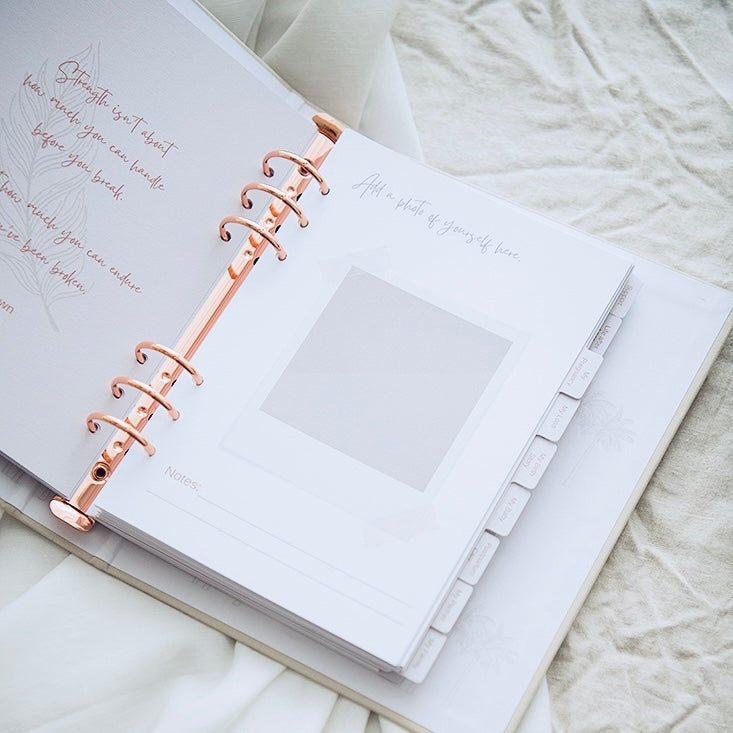 Strength isn't about
how much you can handle
before you break.
how much you can endure
been broken.
Add a photo of yourself here.
Notes:
Support
My
Pregnancy
My Loss
My Birth
Story
My Baby
Postpartum
My Partner
My Family